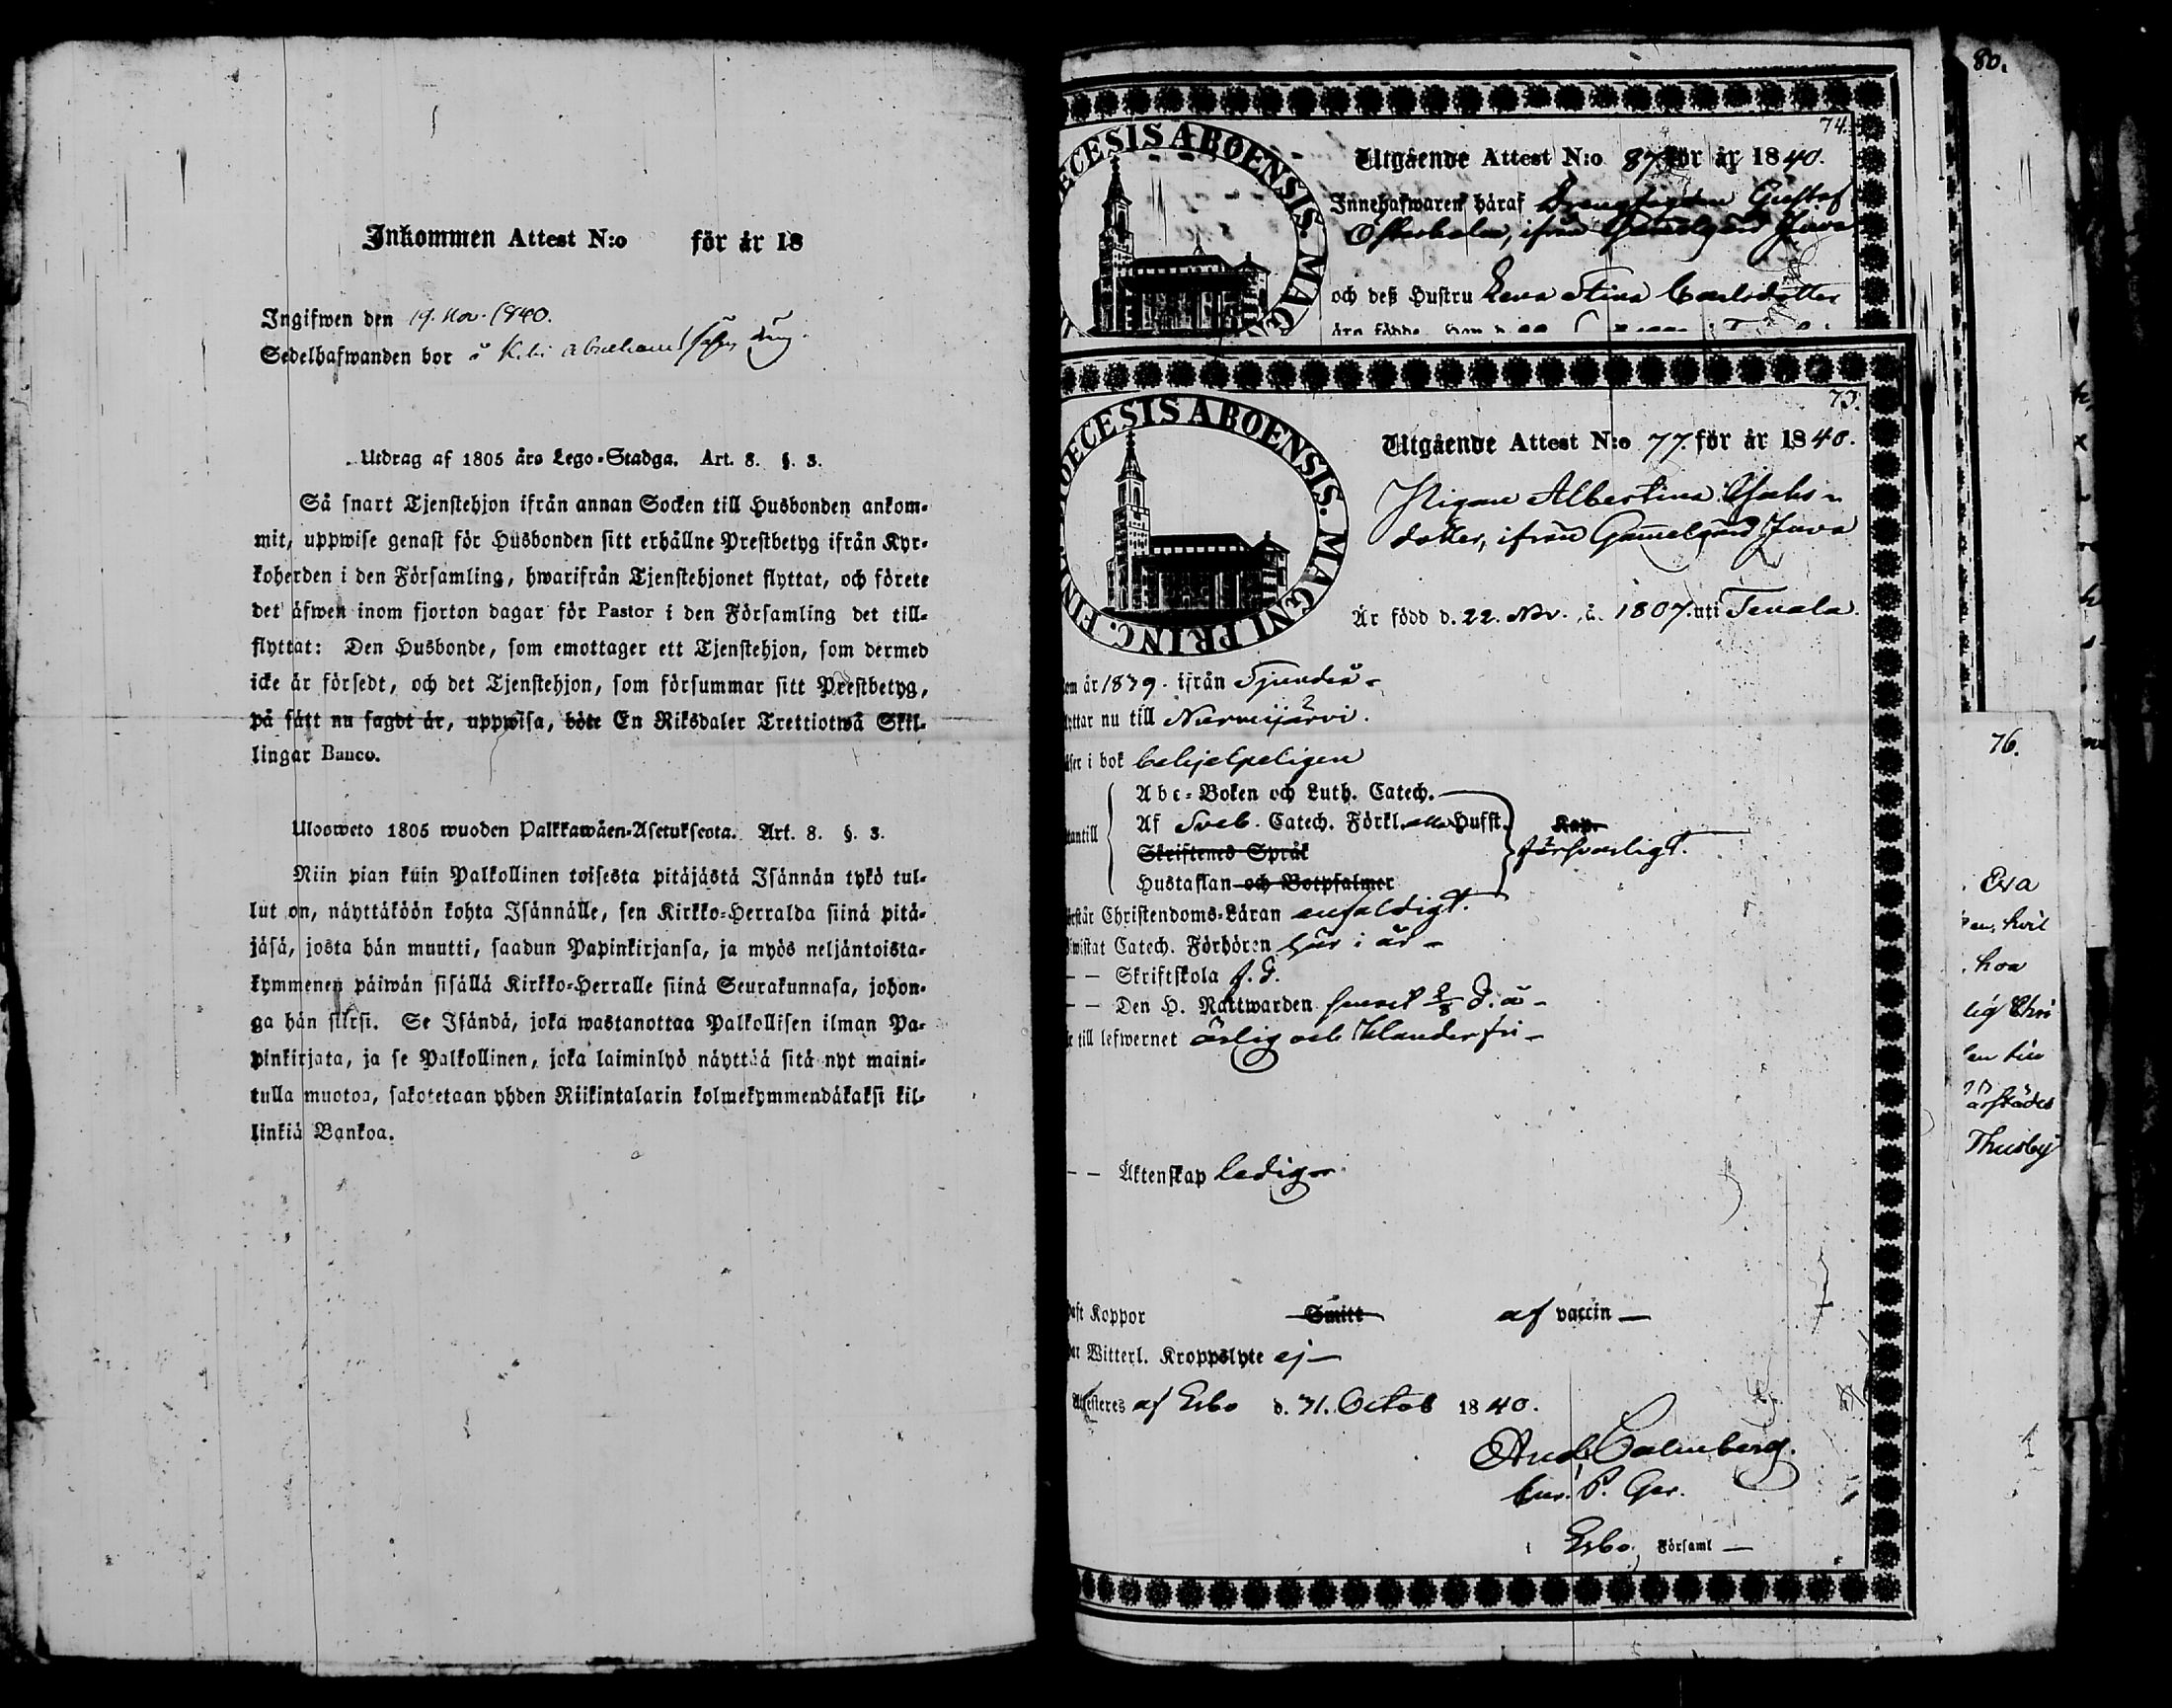 Inkommen Attest N:o för år 18
Ingifwen den 19. Nov. 1840.
Sedelhafwanden bor i
Utdrag af 1805 års Lego-Stadga. Art. 8. §. 3.
Så snart Tjenstehjon ifrån annan Socken till Husbonden ankom-
mit, uppwise genast för Husbonden sitt erhållne Prestbetyg ifrån Kyr-
koherden i den Församling, hwarifrån Tjenstehjonet flyttat, och förete
det äfwen inom fjorton dagar för Pastor i den Församling det till-
flyttat: Den Husbonde, som emottager ett Tjenstehjon, som dermed
icke är försedt, och det Tjenstehjon, som försummar sitt Prestbetyg,
på sätt nu sagdt är, uppwisa, böte En Riksdaler Trettiotwå Skil-
lingar Banco.
Uloosweto 1805 wuoden Palkkawäen-Asetuksesta. Art. 8. §. 3.
Niin pian kuin Palkollinen toisesta pitäjästä Isännän tykö tul-
lut on, näyttäköön kohta Isännälle, sen Kirkko-Herralda siinä pitä-
jäsä, josta hän muutti, saadun Papinkirjansa, ja myös neljäntoista-
kymmenen päiwän sisällä Kirkko-Herralle siinä Seurakunnasa, johon-
ga hän siirsi. Se Isändä, joka wastanottaa Palkollisen ilman Pa-
pinkirjata, ja se Palkollinen, joka laiminlyö näyttää sitä nyt maini-
tulla muotoa, sakotetaan yhden Riikintalarin kolmekymmendäkaksi kil-
linkiä Bankoa.
80.
74.
ECESIS ABOENSIS. MAG
Utgående Attest N:o 87 för år 1840.
Innehafwaren häraf Drengen Gustaf
Österholm, ifrån Gammelgård Juva
och deß Hustru Eva Stina Carlsdotter
73.
DECESIS ABOENSIS. MAGNI PRINC. FIN
Utgående Attest N:o 77. för år 1840.
Pigan Albertina Isaks-
dotter, ifrån Gammelgård Juva
Är född d. 22. Nov. å. 1807. uti Tenala.
om år 1839. ifrån Sjundeå
yttar nu till Nurmijärvi.
äser i bok behjelpeligen
Abc-Boken och Luth. Catech.
Af Sveb. Catech. Förkl. Husst.
Kap.
antill
försvarligt.
Skriftenes Språk
Hustaflan och Botpsalmer
rstår Christendoms-Läran enfaldigt.
wistat Catech. Förhören här i år
Skriftskola f. d.
Den H. Nattwarden senast
till lefwernet ärlig och klanderfri
Äktenskap ledig
aft Koppor Smitt af vaccin
ar Witterl. Kroppslyte ej
Attesteres af Esbo d. 31. Octob 1840.
And. Calenberg.
Cur. P. Ger.
i Esbo Församl
76.
Eva
hoa
Thusby